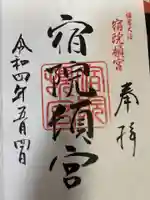 奉拝
宿院頓宮
宿院頓宮
令和四年五月四日